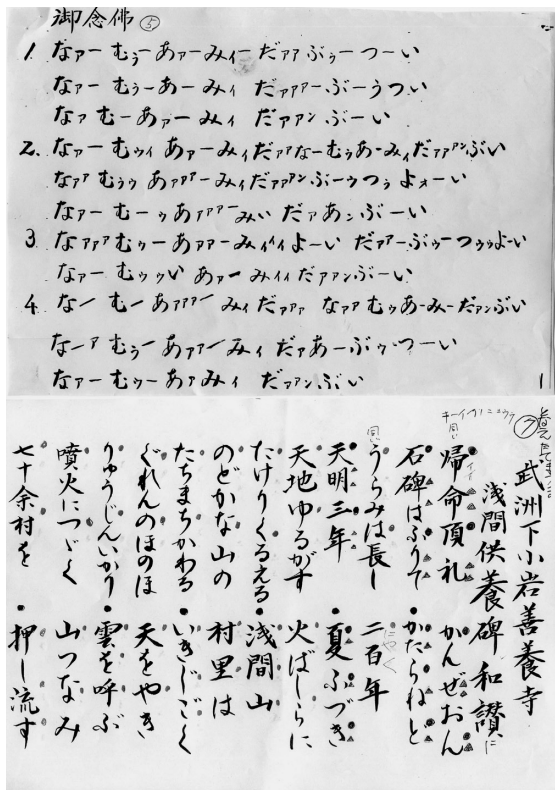 御念佛 ⑤
1. なァー むぅー あァー みィー だァァ ぶぅー つーい
なァー むぅー あー みィ だァァァー ぶーうつい
なァ むー あァー みィ だァァン ぶーい
2. なァー むゥィ あァー みィ だァァ なー むぅ あー みィ だァァァン ぶい
なァァ むぅゥ あァァァー みィ だァァァン ぶーゥ つぅ よォーい
なァー むーゥ あァァァー みぃ だァ あン ぶーい
3. なァァァ むゥー あァァー みィィィ よーい だァァー ぶゥー つゥゥ よーい
なァー むゥゥい あァー みィィ だァァン ぶーい
4. なー むー あァァァー みィ だァァァ なァァ むゥ あー みー だァン ぶい
なーァ むぅー あァァー みィ だァ あー ぶゥ つーい
なァー むゥー あァ みィ だァァン ぶい
⑦ 武洲下小岩善養寺
浅間供養碑和讃に
帰命頂礼 かんぜおん
石碑はふりて ・かたらねど
うらみは長し 二百年
天明三年 ・夏ふづき
天地ゆるがす 火ばしらに
たけりくるえる ・浅間山
のどかな山の 村里は
たちまちかわる ・いきじごく
ぐれんのほのほ 天をやき
りゅうじんいかり ・雲を呼ぶ
噴火につゞく 山つなみ
七十余村を ・押し流す